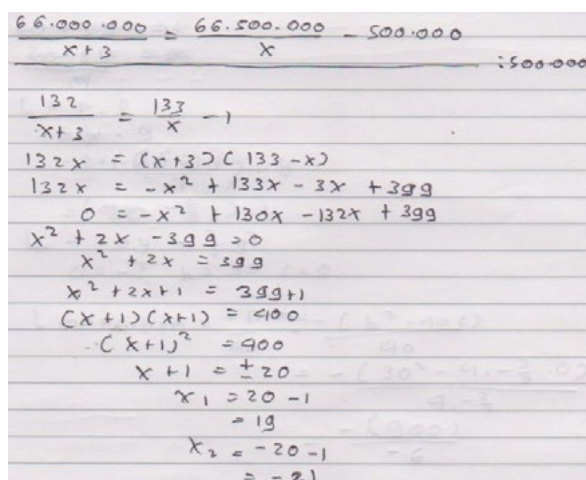 66.000.000 / x+3 = 66.500.000 / x - 500.000
:500.000
132 / x+3 = 133 / x - 1
132x = (x+3)(133-x)
132x = -x² + 133x - 3x + 399
0 = -x² + 130x - 132x + 399
x² + 2x - 399 = 0
x² + 2x = 399
x² + 2x + 1 = 399+1
(x+1)(x+1) = 400
(x+1)² = 400
x+1 = ± 20
x₁ = 20 - 1
= 19
x₂ = -20 - 1
= -21